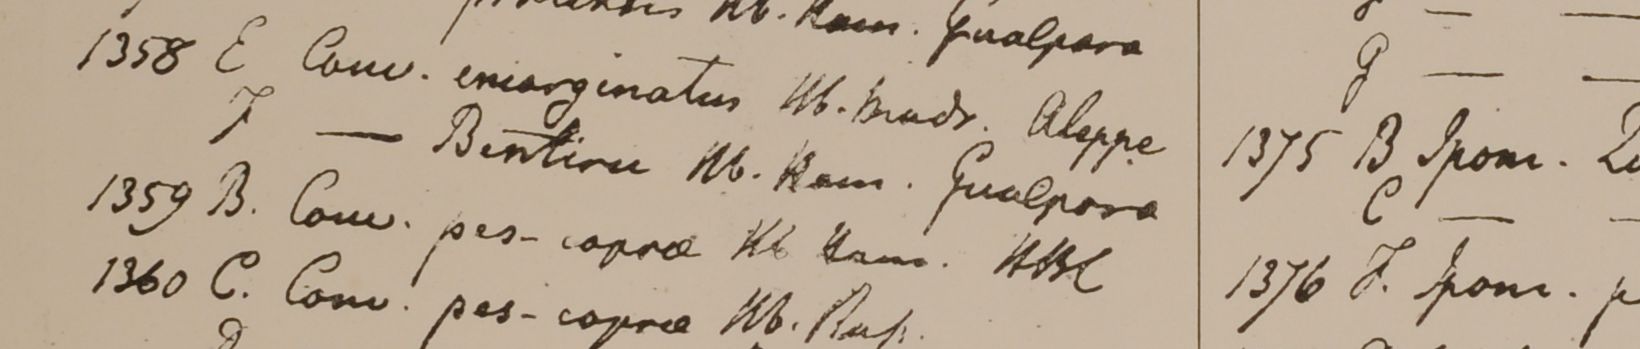 Hb. Ham. Gualpara
1358 E Conv. emarginatus Hb. Madr. Aleppe
F — Hb. Ham. Gualpara
1359 B. Conv. pes-caprae Hb Ham. HBC
1360 C. Conv. pes-caprae Hb.
D
G —
1375 B Ipom.
C —
1376 F. Ipom. p